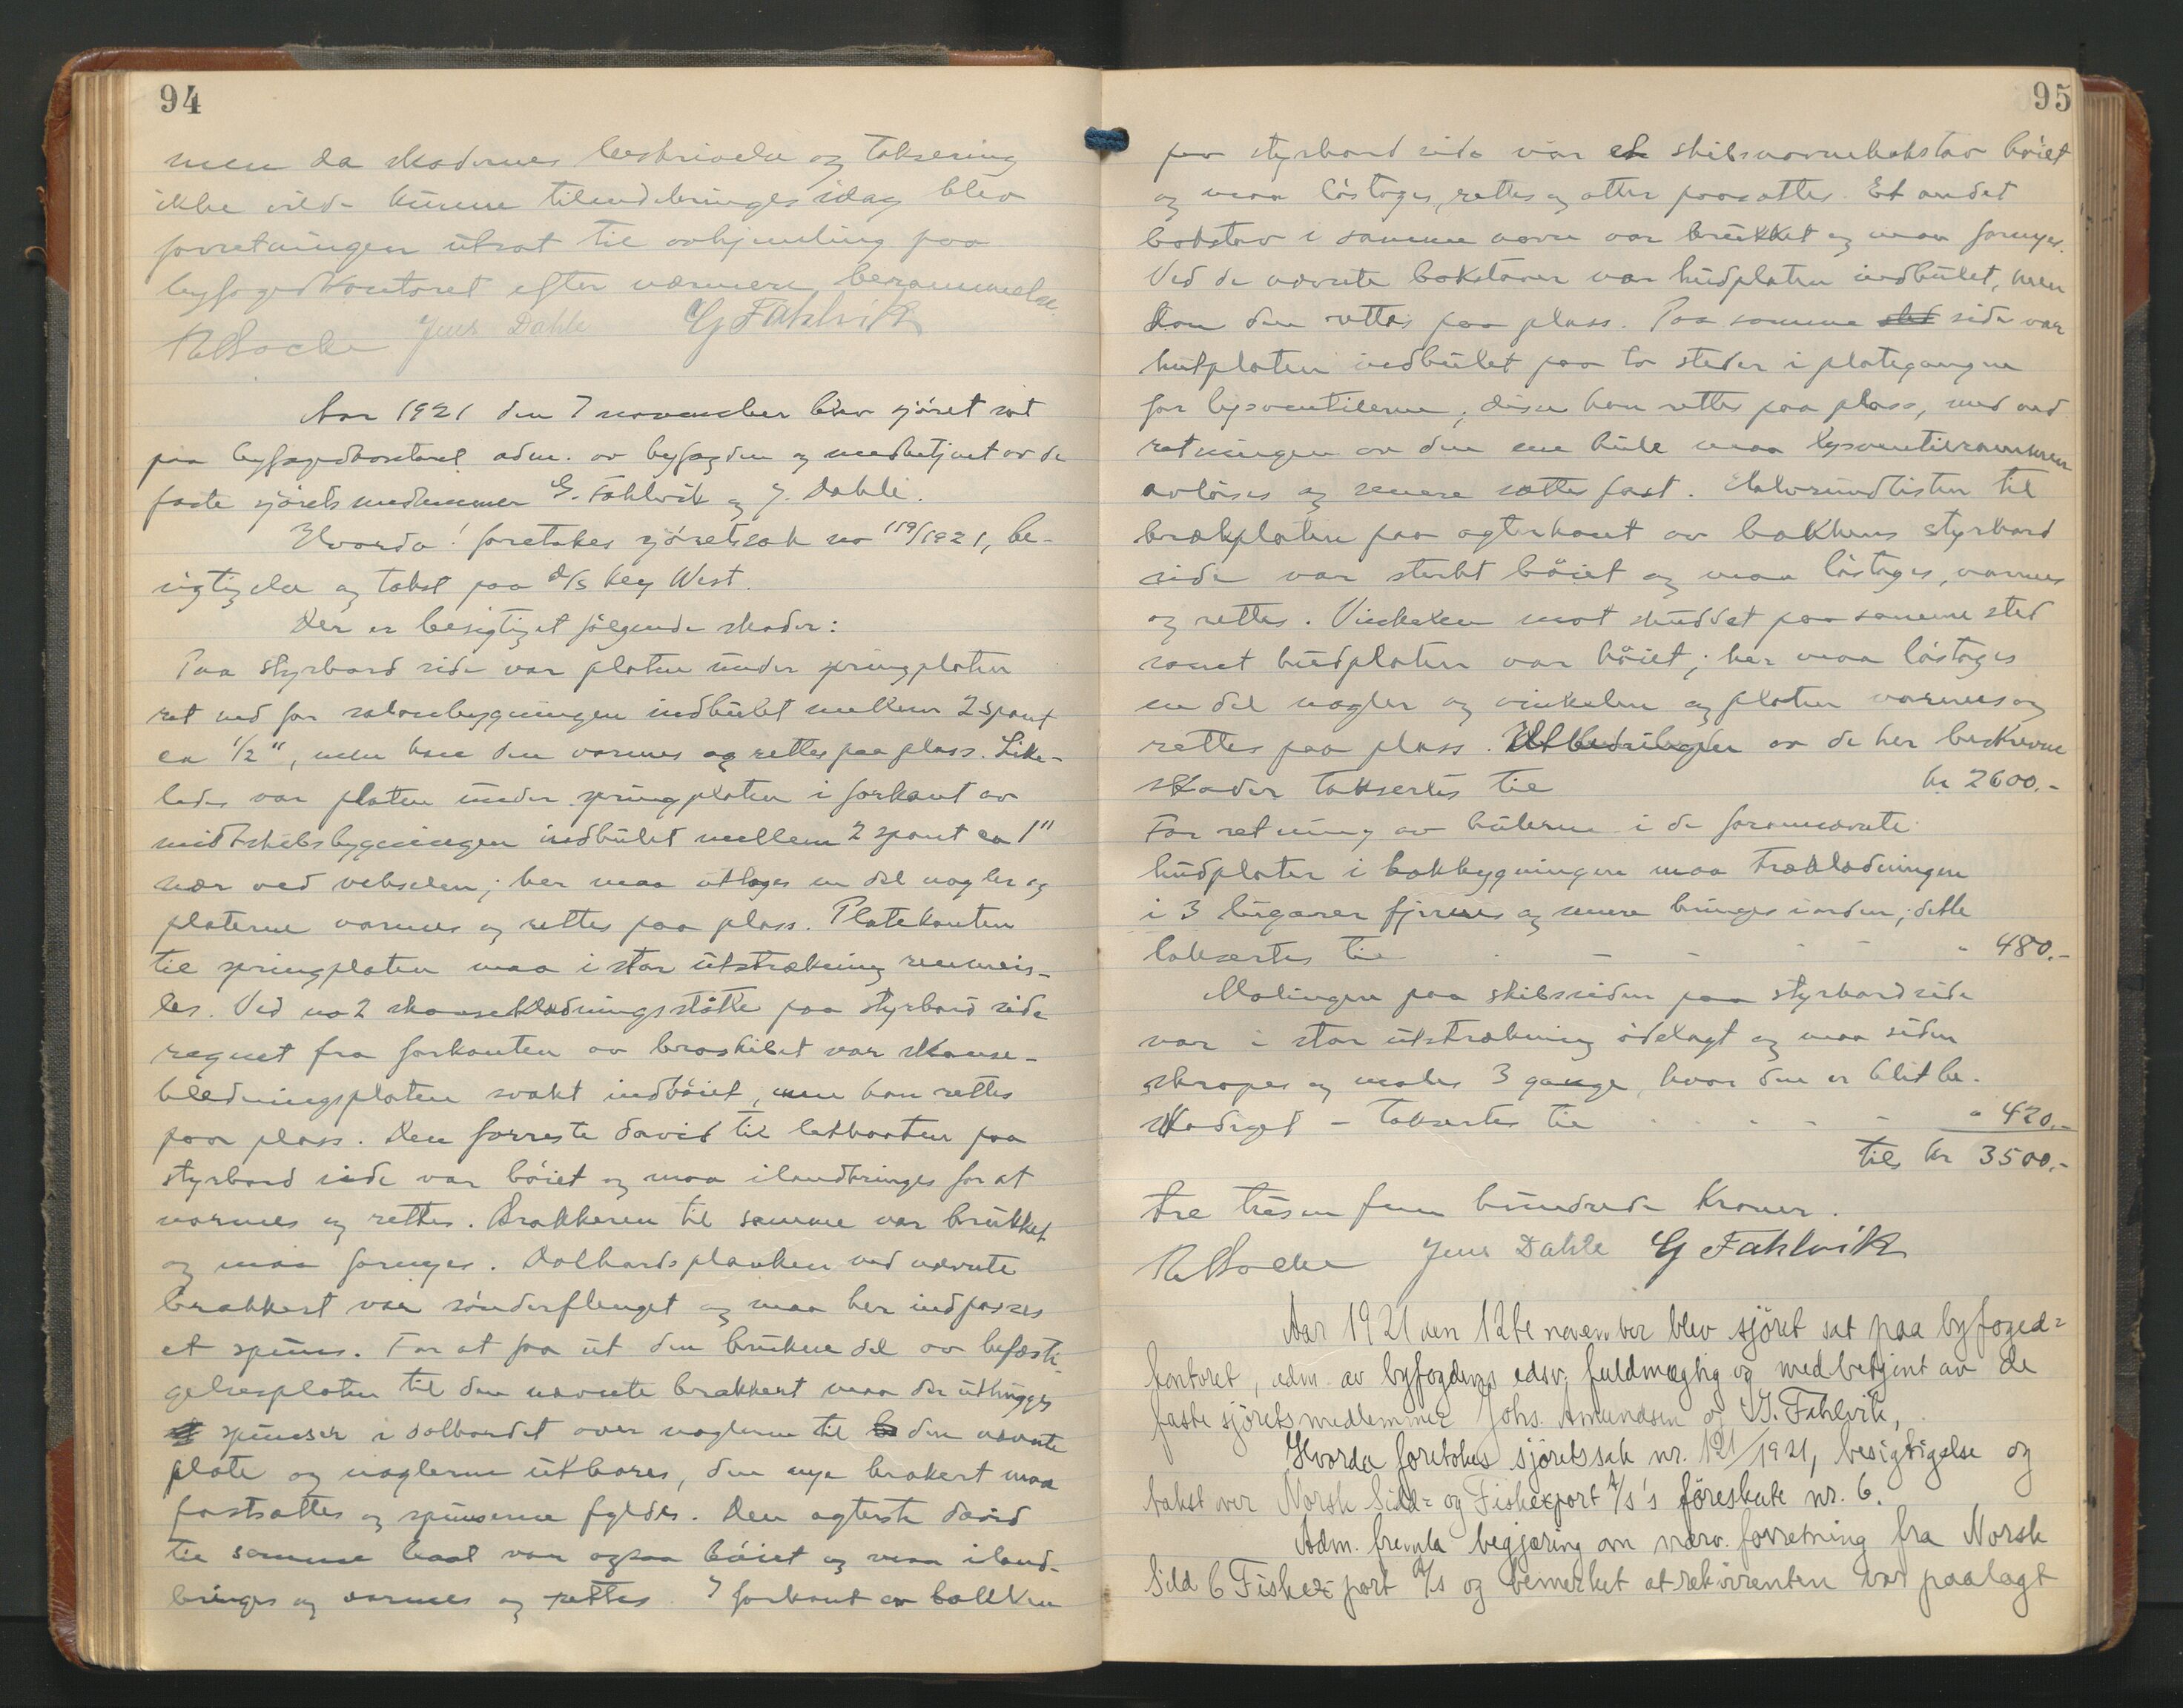 94
men da skadernes beskrivelse og taksering
ikke vilde kunne tilendebringes idag blev
forretningen utsat til avhjemling paa
byfogedkontoret efter nærmere berammelse.
Jens Dahle G Fahlvik
Aar 1921 den 7 november blev sjöret sat
paa byfogedkontoret adm. av byfogden og medbetjent av de
faste sjöretsmedlemmer G. Fahlvik og J. Dahle.
Hvorda! foretakes sjöretssak no 119/1921, be-
sigtigelse og takst paa d/s Key West.
Der er besigtiget følgende skader:
Paa styrbord side var platen under springplaten
ret ned for salonbygningen indbulet mellem 2 spant
ca 1/2", men kan den varmes og rettes paa plass. Like-
ledes var platen under springplaten i forkant av
midtskibsbygningen indbulet mellem 2 spant ca 1"
nær ved vekselen; her maa uttages en del nagler og
platerne varmes og rettes paa plass. Platekanten
til springplaten maa i stor utstrækning renmeis-
les. Ved no 2 skansekledningsstötte paa styrbord side
regnet fra forkanten av broskibet var skanse-
kledningsplaten svakt indböiet, men kan rettes
paa plass. Den forreste david til letbaaten paa
styrbord side var böiet og maa ilandbringes for at
varmes og rettes. Brakketen til samme var brukket
og maa fornyes. Dolbordsplanken ved nævnte
brakket var sönderflenget og maa her indpasses
et spuns. For at faa ut den brukne del av befæsti
gelsesplaten til den nævnte brakket maa der uthugges
spunser i dolbordet over naglerne til den nævnte
plate og naglerne utbores, den nye braket maa
fastsættes og spunserne fyldes. Den agterste david
til samme baat var ogsaa böiet og maa iland-
bringes og varmes og rettes. I forkant av bakken
95
paa styrbord side var et skibsnavnebokstav böiet
og maa löstages, rettes og atter paasættes. Et andet
bokstav i samme navn var brukket og maa fornyes.
Ved de nævnte bokstaver var hudplaten indbulet, men
kan den rettes paa plass. Paa samme sted side var
hutplaten indbulet paa to steder i plategangen
for lysventilerne, disse kan rettes paa plass, med ved
retningen av den ene bule maa lysventilrammen
avlöses og senere sættes fast. Halvrundlisten til
brækplaten paa agterkant av bakkens styrbord
side var sterkt böiet og maa löstages, varmes
og rettes. Vinkelen mot skuddet paa samme sted
samt hudplaten var böiet; her maa löstages
en del nagler og vinkelen og platen varmes og
rettes paa plass. Utbedringen av de her beskrevne
skader taksertes til kr 2600.-
For retning av bulerne i de forannævnte
hudplater i bakbygningen maa trækledningen
i 3 lugarer fjernes og senere bringes i orden; dette
taksertes til - - - - " 480.-
Malingen paa skibssiden paa styrbord side
var i stor utstrækning ödelagt og maa siden
skrapes og males 3 gange, hvor den er blit be-
skadiget - taksertes til - - - " 420.-
Tils kr 3500.-
Tre tusen fem hundrede Kroner.
Jens Dahle G Fahlvik
Aar 1921 den 12te november blev sjöret sat paa byfoged=
kontoret, adm. av byfogdens edsv. fuldmægtig og medbetjent av de
faste sjöretsmedlemmer Johs. Amundsen og G. Fahlvik,
Hvorda foretokes sjöretssak nr. 121/1921, besigtigelse og
takst over Norsk Sild= og Fiskexport A/S's föreskute nr. 6.
Adm. fremla begjæring om nærv. forretning fra Norsk
Sild & Fiskexport A/S og bemerket at rekvirenten var paalagt